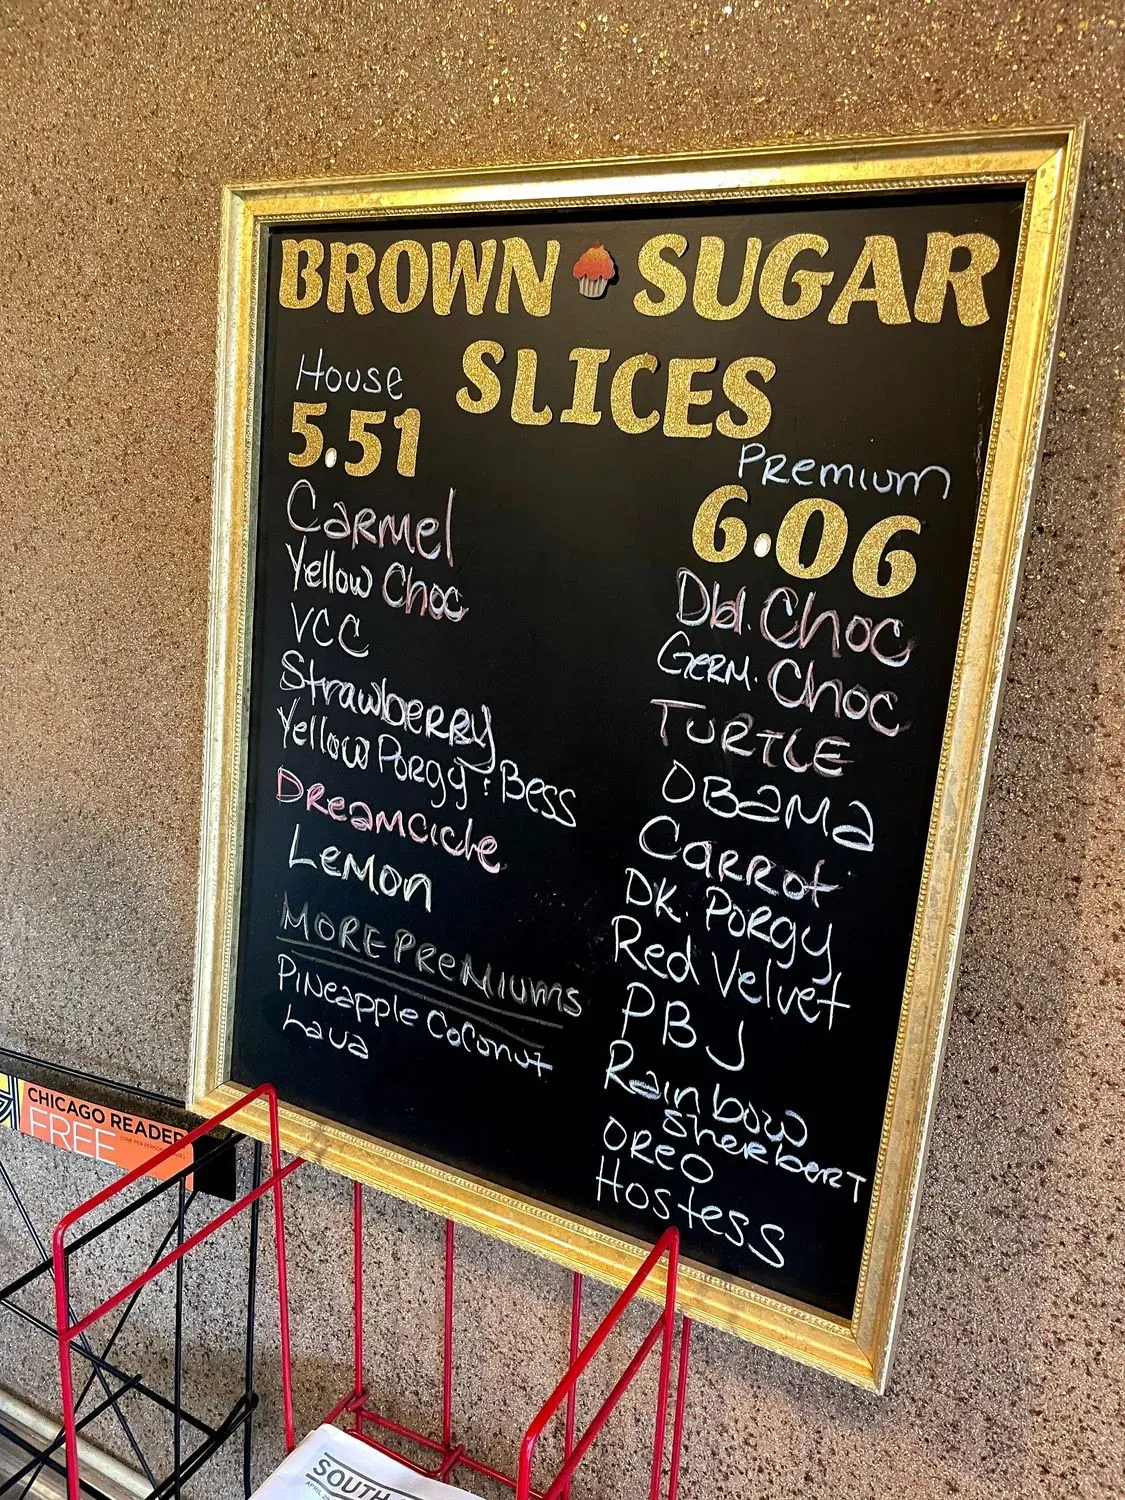 BROWN SUGAR
SLICES
House
5.51
Carmel
Yellow Choc
VCC
Strawberry
Yellow Porgy & Bess
Dreamcicle
Lemon
MORE PREMIUMS
Pineapple Coconut
Lava
Premium
6.06
Dbl. Choc
Germ. Choc
TURTLE
OBama
Carrot
DK. Porgy
Red Velvet
PBJ
Rainbow
Sherbert
OREO
Hostess
CHICAGO READER
FREE
SOUTH